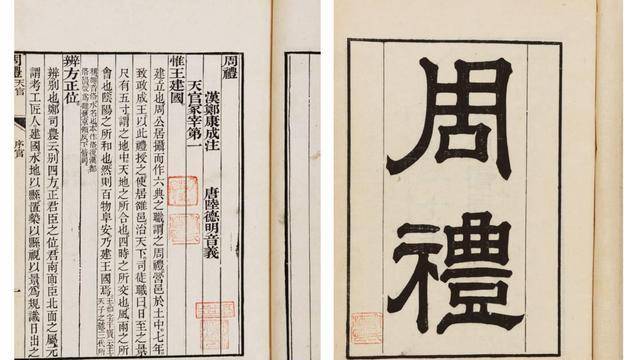 周禮
周禮
漢鄭康成注　唐陸德明音義
天官冢宰第一
惟王建國
建立也周公居攝而作六典之職謂之周禮營邑於土中七年
致政成王以此禮授之使居雒邑治天下司徒職曰日至之景
尺有五寸謂之地中天地之所合也四時之所交也風雨之所
會也陰陽之所和也然則百物阜安乃建王國焉
辨方正位
辨別也鄭司農云別四方正君臣之位君南面臣北面之屬元
謂考工匠人建國水地以縣置槷以縣視以景爲規識日出之
周禮 天官 序官 一